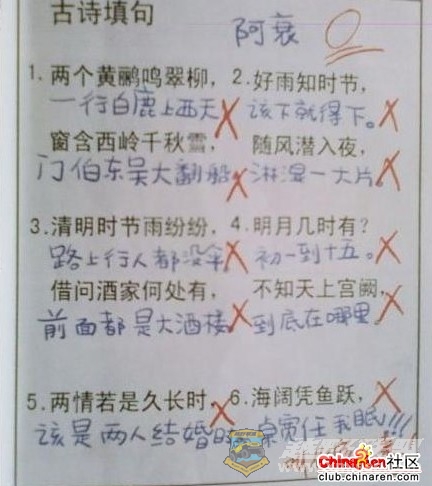 古诗填句
阿衰 0
1. 两个黄鹂鸣翠柳, 2. 好雨知时节,
一行白鹿上西天 该下就得下。
窗含西岭千秋雪, 随风潜入夜,
门伯东吴大翻船 淋湿一大片。
3. 清明时节雨纷纷, 4. 明月几时有?
路上行人都没伞 初一到十五。
借问酒家何处有, 不知天上宫阙,
前面都是大酒楼 到底在哪里
5. 两情若是久长时, 6. 海阔凭鱼跃,
该是两人结婚时 桌宽任我眠!!!
ChinaRen社区
club.chinaren.com